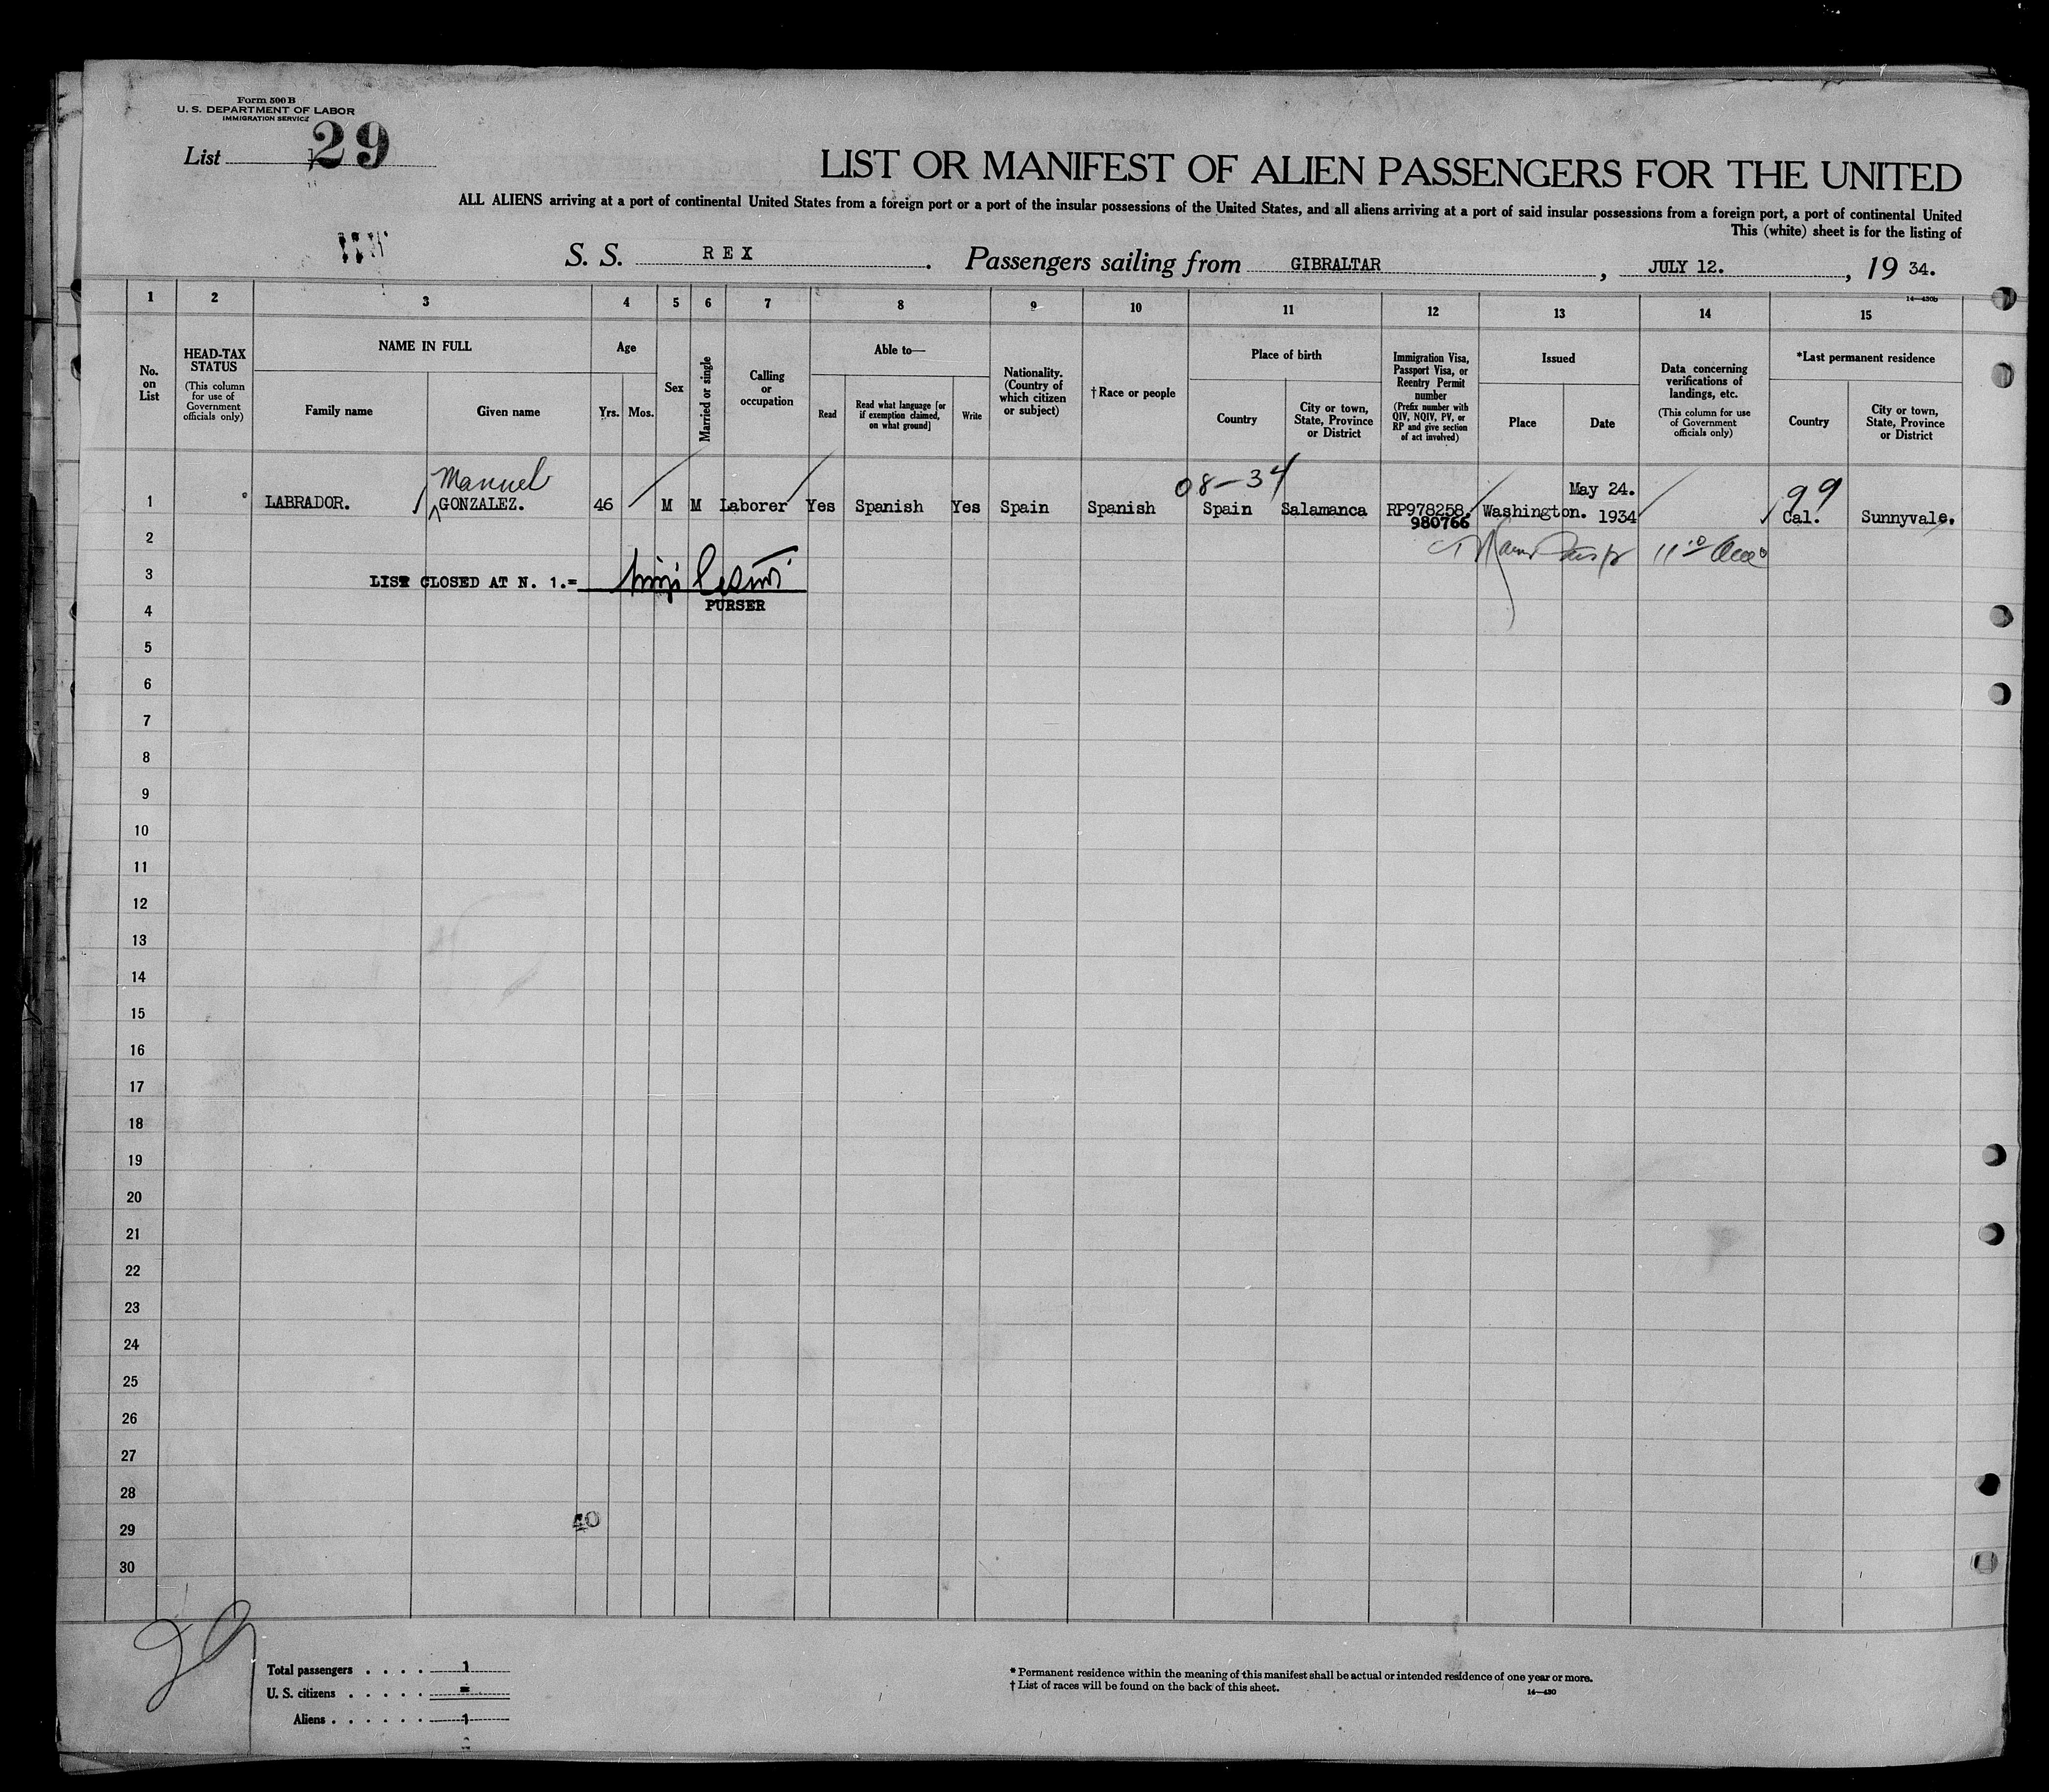 Form 500 B
U. S. DEPARTMENT OF LABOR
IMMIGRATION SERVICE
List 29
LIST OR MANIFEST OF ALIEN PASSENGERS FOR THE UNITED
ALL ALIENS arriving at a port of continental United States from a foreign port or a port of the insular possessions of the United States, and all aliens arriving at a port of said insular possessions from a foreign port, a port of continental United
This (white) sheet is for the listing of
S. S. REX. Passengers sailing from GIBRALTAR, JULY 12., 19 34.
14—430b
1 2 3 4 5 6 7 8 9 10 11 12 13 14 15
No. on List
HEAD-TAX STATUS
(This column for use of Government officials only)
NAME IN FULL
Family name
Given name
Age
Yrs. Mos.
Sex
Married or single
Calling or occupation
Able to—
Read
Read what language [or if exemption claimed, on what ground]
Write
Nationality. (Country of which citizen or subject)
† Race or people
Place of birth
Country
City or town, State, Province or District
Immigration Visa, Passport Visa, or Reentry Permit number
(Prefix number with QIV, NQIV, PV, or RP and give section of act involved)
Issued
Place
Date
Data concerning verifications of landings, etc.
(This column for use of Government officials only)
*Last permanent residence
Country
City or town, State, Province or District
Manuel
08-34
May 24.
99
1 LABRADOR. GONZALEZ. 46 M M Laborer Yes Spanish Yes Spain Spanish Spain Salamanca RP978258. Washington. 1934 Cal. Sunnyvale.
980766
2
3 LIST CLOSED AT N. 1.=
PURSER
4
5
6
7
8
9
10
11
12
13
14
15
16
17
18
19
20
21
22
23
24
25
26
27
28
29
40
30
29
Total passengers . . . . 1
U. S. citizens . . . . . =
Aliens . . . . . . 1
* Permanent residence within the meaning of this manifest shall be actual or intended residence of one year or more.
† List of races will be found on the back of this sheet.
14—430